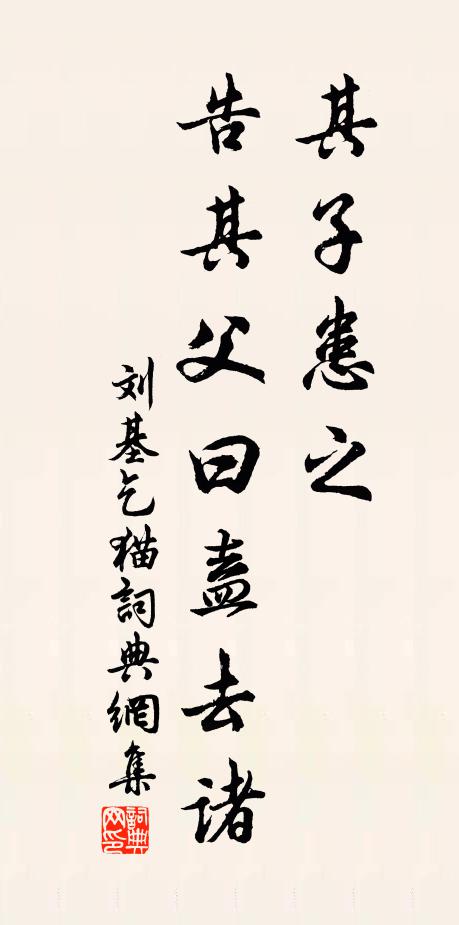 其子患之
告其父曰盍去诸
刘基乞猫詞典網集
詞典
网印